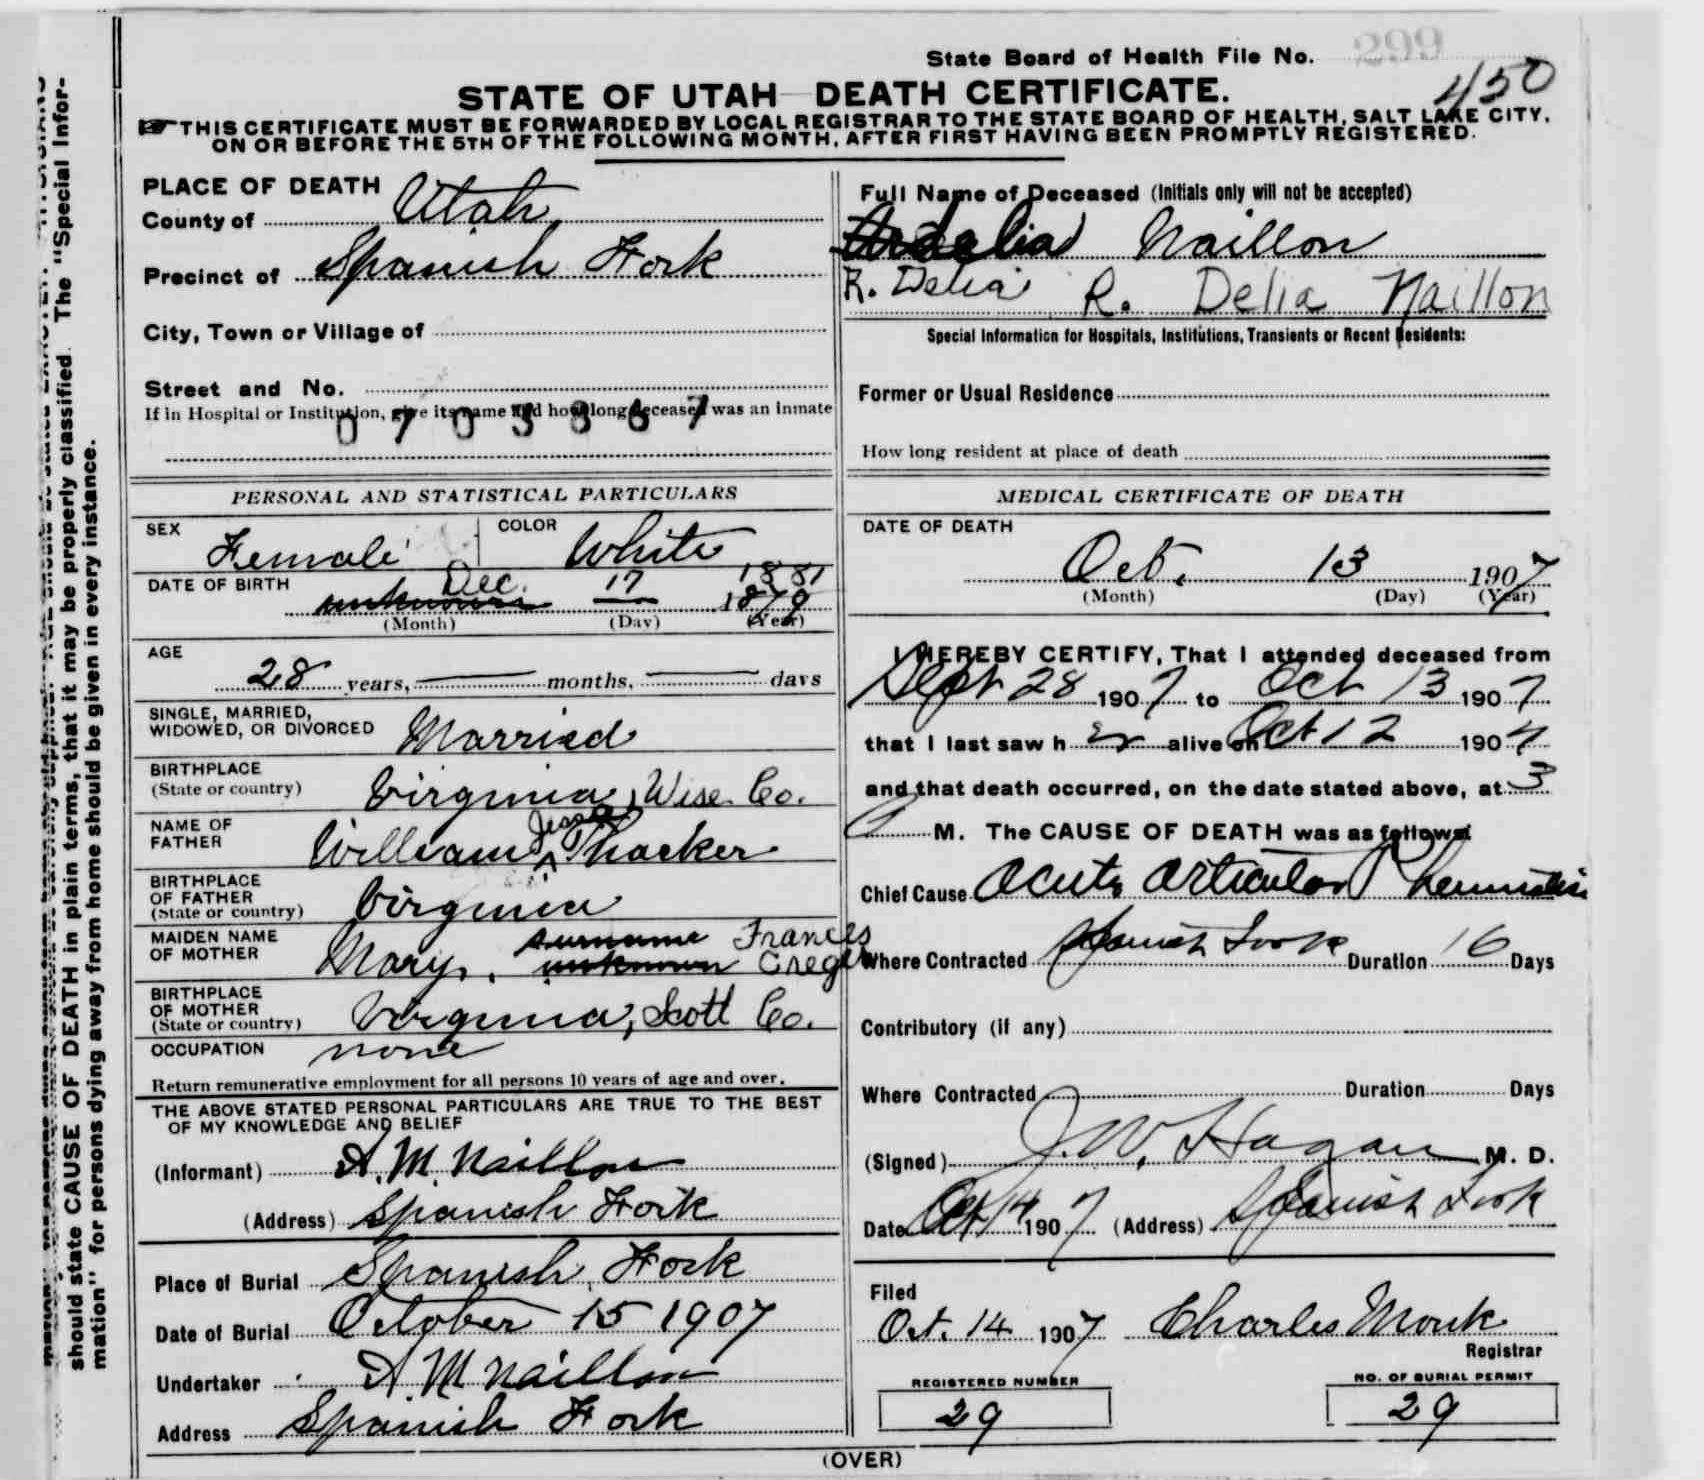 State Board of Health File No. 299
450
STATE OF UTAH—DEATH CERTIFICATE.
THIS CERTIFICATE MUST BE FORWARDED BY LOCAL REGISTRAR TO THE STATE BOARD OF HEALTH, SALT LAKE CITY,
ON OR BEFORE THE 5TH OF THE FOLLOWING MONTH, AFTER FIRST HAVING BEEN PROMPTLY REGISTERED.
should state CAUSE OF DEATH in plain terms, that it may be properly classified. The "Special Infor-
mation" for persons dying away from home should be given in every instance.
PLACE OF DEATH
County of Utah
Precinct of Spanish Fork
City, Town or Village of
Street and No.
If in Hospital or Institution, give its name and how long deceased was an inmate
0703367
Full Name of Deceased (Initials only will not be accepted)
Ardelia Naillon
R. Delia R. Delia Naillon
Special Information for Hospitals, Institutions, Transients or Recent Residents:
Former or Usual Residence
How long resident at place of death
PERSONAL AND STATISTICAL PARTICULARS
SEX Female COLOR White
DATE OF BIRTH unknown Dec. 17 1881 1879
(Month) (Day) (Year)
AGE
28 years, months, days
SINGLE, MARRIED,
WIDOWED, OR DIVORCED Married
BIRTHPLACE
(State or country) Virginia, Wise Co.
NAME OF
FATHER William Jesse Thacker
BIRTHPLACE
OF FATHER
(State or country) Virginia
MAIDEN NAME
OF MOTHER Mary, surname unknown Frances Creger
BIRTHPLACE
OF MOTHER
(State or country) Virginia, Scott Co.
OCCUPATION none
Return remunerative employment for all persons 10 years of age and over.
THE ABOVE STATED PERSONAL PARTICULARS ARE TRUE TO THE BEST
OF MY KNOWLEDGE AND BELIEF
(Informant) A. M. Naillon
(Address) Spanish Fork
Place of Burial Spanish Fork
Date of Burial October 15 1907
Undertaker A. M Naillon
Address Spanish Fork
MEDICAL CERTIFICATE OF DEATH
DATE OF DEATH
Oct. 13 1907
(Month) (Day) (Year)
I HEREBY CERTIFY, That I attended deceased from
Sept 28 1907 to Oct 13 1907
that I last saw her alive on Oct 12 1907
and that death occurred, on the date stated above, at 3
P M. The CAUSE OF DEATH was as follows:
Chief Cause Acute Articular Rheumatism
Where Contracted Spanish Fork Duration 16 Days
Contributory (if any)
Where Contracted Duration Days
(Signed) J. W. Hagan M. D.
Date Oct 14 1907 (Address) Spanish Fork
Filed
Oct. 14 1907 Charles Monk
Registrar
REGISTERED NUMBER
29
NO. OF BURIAL PERMIT
29
(OVER)